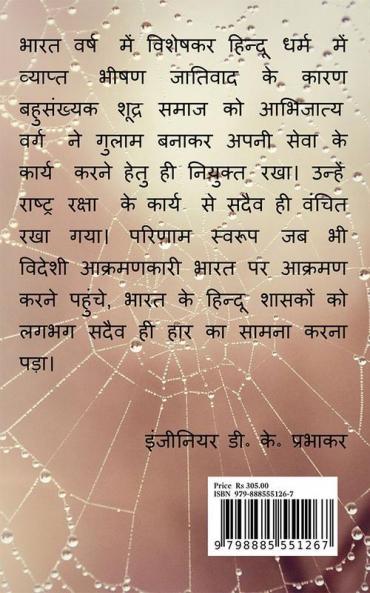 भारत वर्ष में विशेषकर हिन्दू धर्म में
व्याप्त भीषण जातिवाद के कारण
बहुसंख्यक शूद्र समाज को आभिजात्य
वर्ग ने गुलाम बनाकर अपनी सेवा के
कार्य करने हेतु ही नियुक्त रखा। उन्हें
राष्ट्र रक्षा के कार्य से सदैव ही वंचित
रखा गया। परिणाम स्वरूप जब भी
विदेशी आक्रमणकारी भारत पर आक्रमण
करने पहुंचे, भारत के हिन्दू शासकों को
लगभग सदैव ही हार का सामना करना
पड़ा।
इंजीनियर डी० के० प्रभाकर
Price Rs 305.00
ISBN 979-888555126-7
9 798885 551267